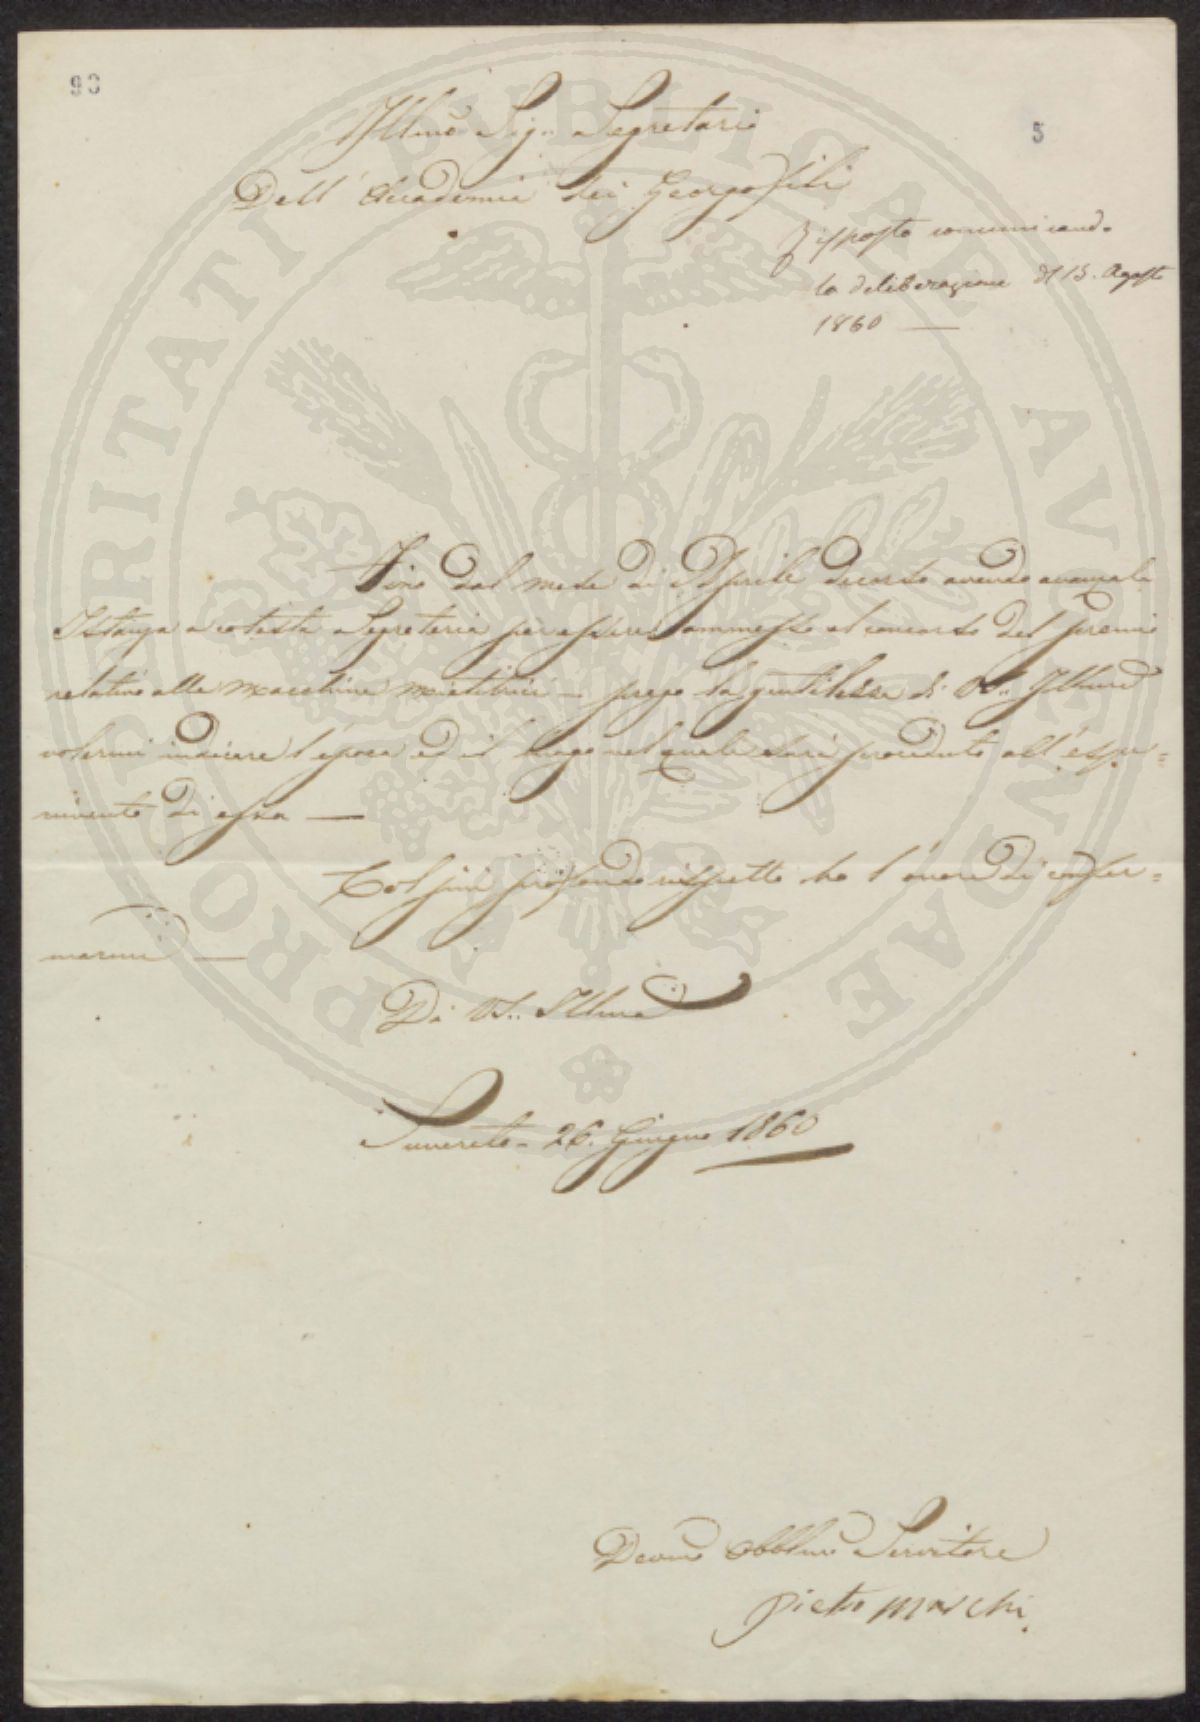 93
5
Illmo Sig.. Segretario
Dell' Accademia dei Georgofili
Risposto comunicando
la deliberazione di 15. Agosto
1860 —
Fino dal mese di Aprile decorso avendo avanzata
Istanza a cotesta Segreteria per essere ammesso al concorso del premio
relativo alle macchine mietitrici — prego la gentilezza di VS.. Illma
volermi indicare l'epoca ed il luogo nel quale sarà proceduto all'espe=
rimento di essa —
Col più profondo rispetto ho l'onore di confer=
marmi —
Di VS.. Illma
Suvereto - 26. Giugno 1860
Devmo Obblmo Servitore
Pietro Marchi.
PROSPERITATI PUBLICAE AVGENDAE